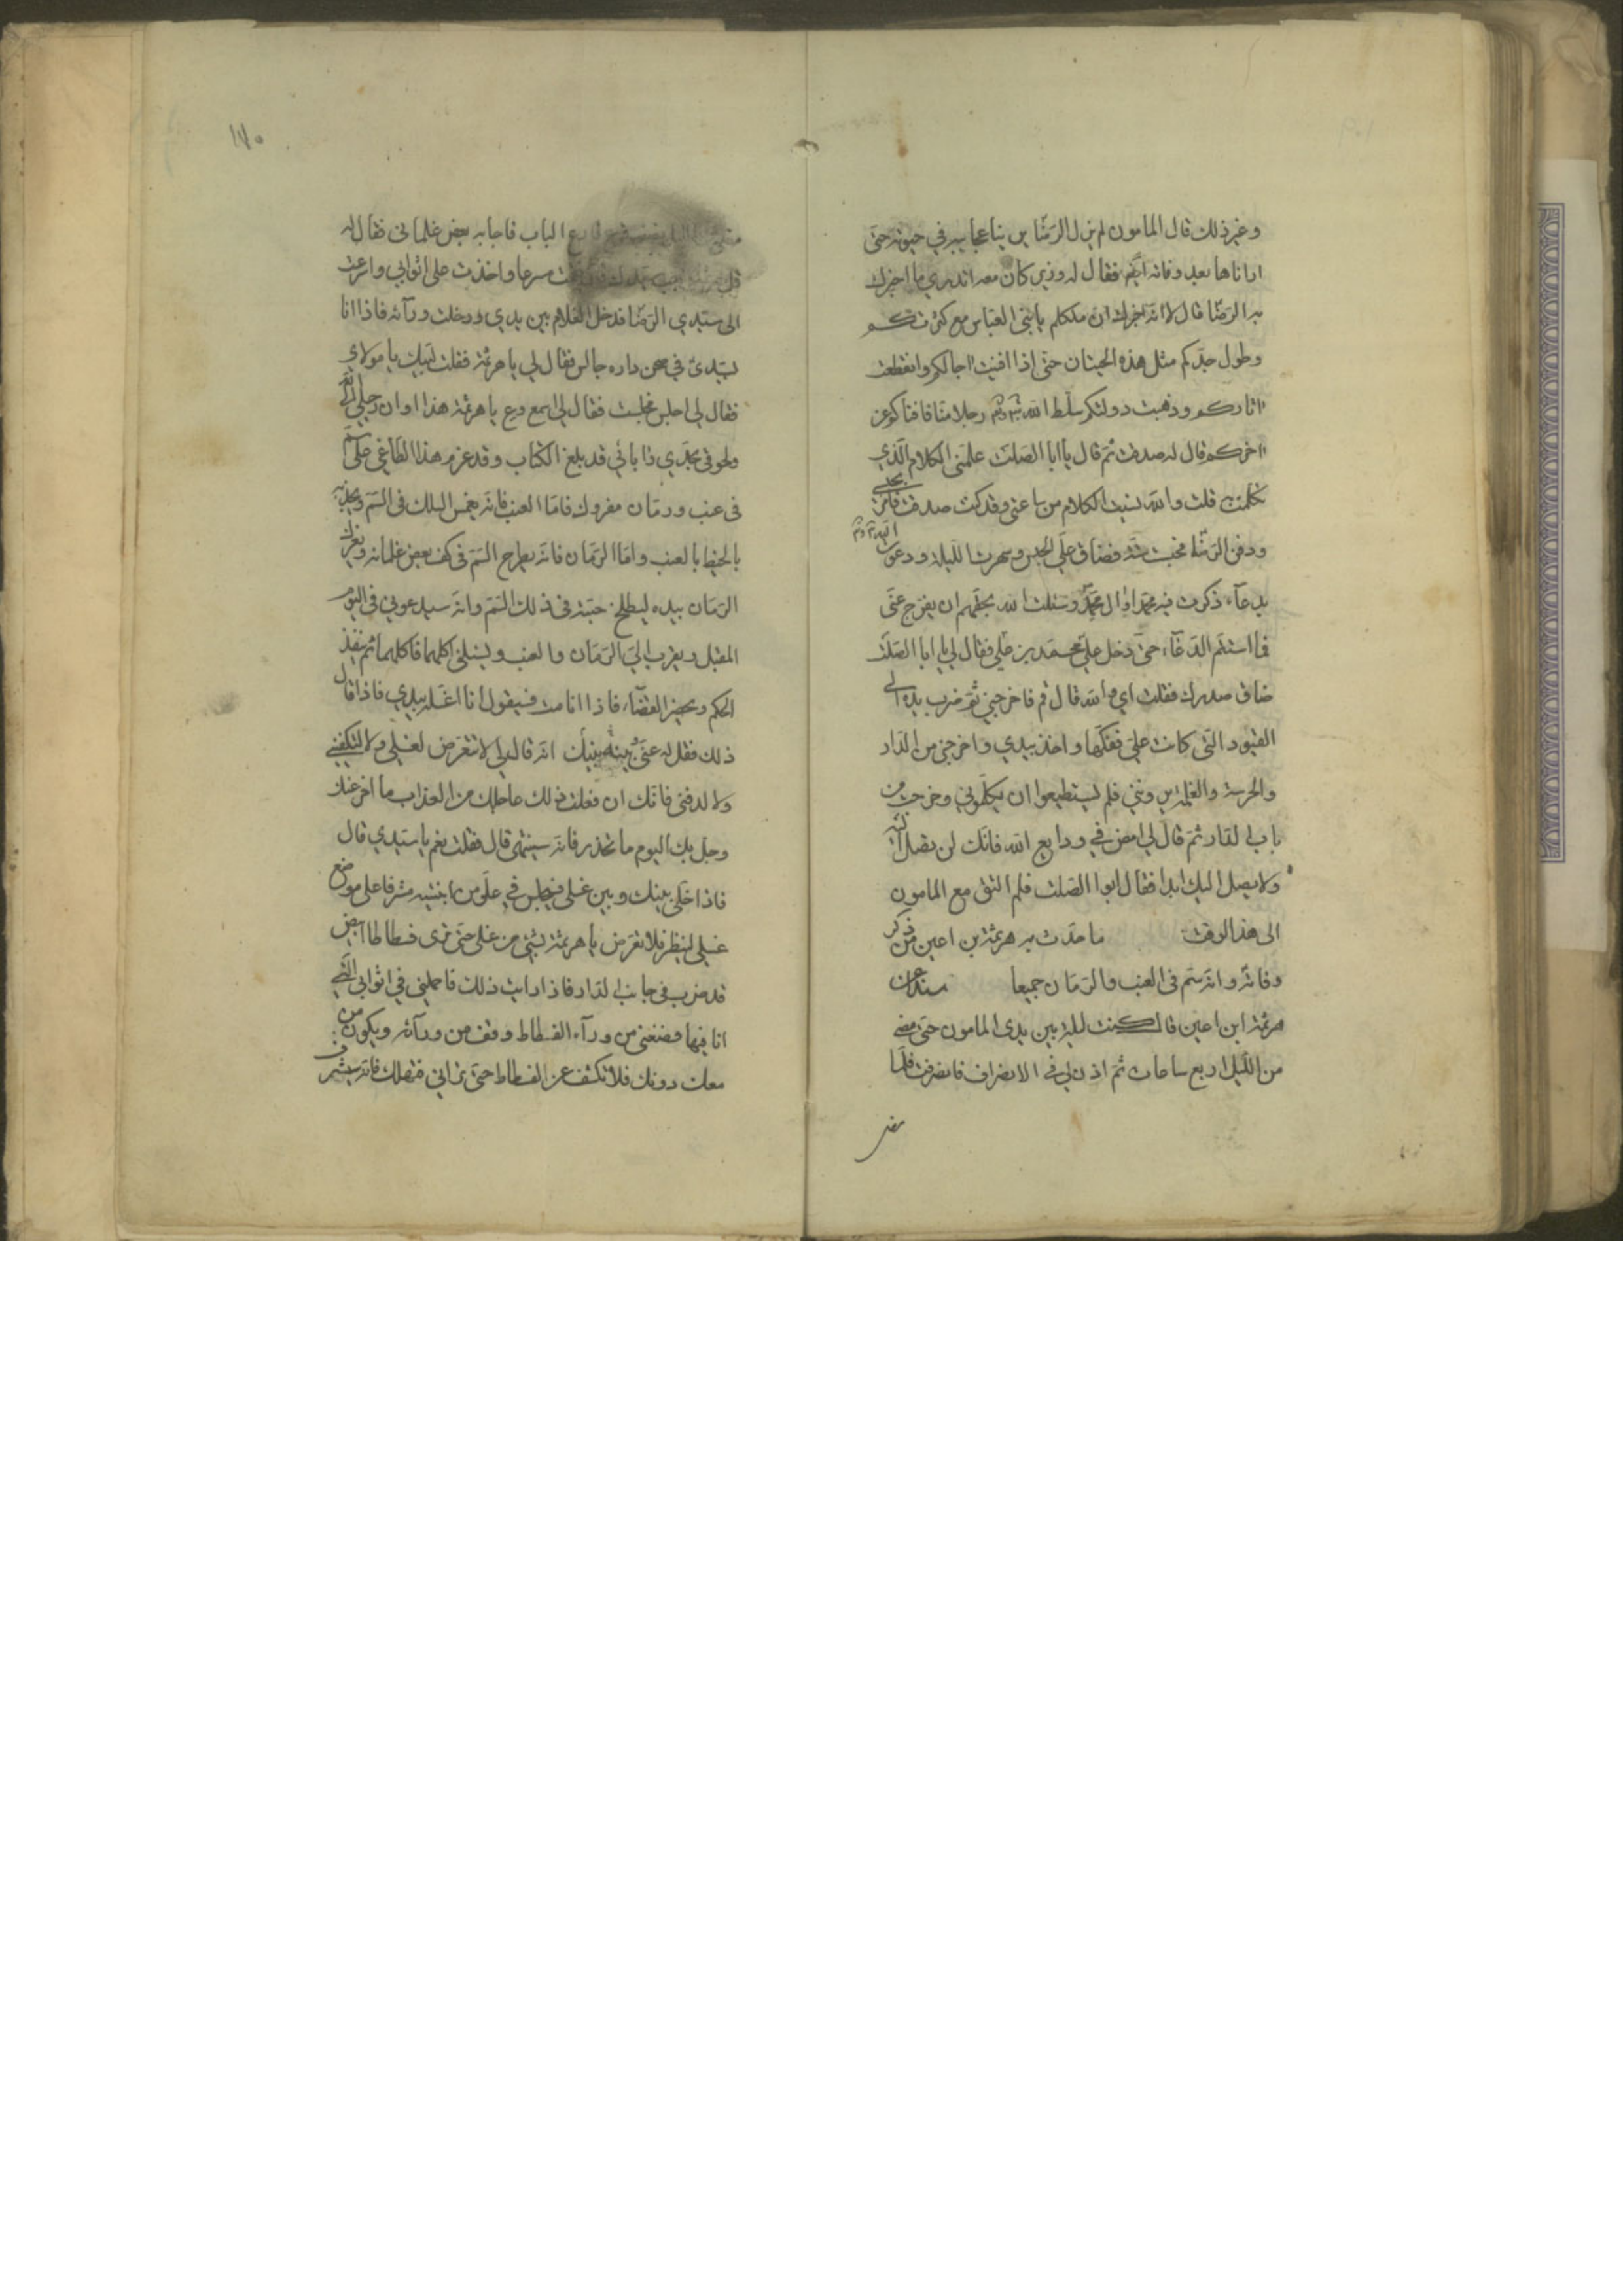 وغير ذلك قال المامون لم يزل الرضا يرينا عجايبه في حيوته حتى
ارا ناها بعد وفاته ايضا فقال له وزير كان معه اتدري ما اخبرك
به الرضا قال لا قال انه اخبرك ان ملككم يا بني العباس مع كثرتكم
وطول حدكم مثل هذه الحيتان حتى اذا افنيت اجالكم وانقطعت
اثاركم وذهبت دولتكم سلط الله رجلا منا فافناكم عن
اخركم قال له صدقت ثم قال يا ابا الصلت علمني الكلام الذي
تكلمت به قلت والله نسيت الكلام من ساعتي وقد كنت صدقت فامر بحبسي
ودفن الرضا فحبست سنة فضاق علي الحبس وسهرت الليلة ودعوت الله
بدعاء ذكرت فيه محمدا وال محمد وسئلت الله بحقهم ان يفرج عني
فما استتم الدعاء حتى دخل علي محمد بن علي فقال لي يا ابا الصلت
ضاق صدرك فقلت اي والله قال قم فاخرجني ثم ضرب يده الى
القيود التي كانت علي ففكها واخذ بيدي واخرجني من الدار
والحرسة والغلمة يرونني فلم يستطيعوا ان يكلموني وخرجت من
باب الدار ثم قال لي امض في ودايع الله فانك لن تصل اليه
ولا يصل اليك ابدا فقال ابوا الصلت فلم التق مع المامون
الى هذا الوقت ما حدث به هرثمة بن اعين من ذكر
وفاته وانه سم في العنب والرمان جميعا مسندا عن
هرثمة ابن اعين قال كنت ليلة بين يدى المامون حتى مضى
من الليل اربع ساعات ثم اذن لي في الانصراف فانصرفت فلما
١٧٠
الباب فاجابه بعض غلماني فقال له
قل مسرعا واخذت على اثوابي واسرعت
الى سيدي الرضا فدخل الغلام بين يدي ودخلت ورآئه فاذا انا
بسيدي في صحن داره جالس فقال لي يا هرثمة فقلت لبيك يا مولاي
فقال لي اجلس فجلست فقال لي اسمع وع يا هرثمة هذا اوان رحيلي الى الله
ولحوقي بجدي وابائي قد بلغ الكتاب وقد عزم هذا الطاغي على سمي
في عنب ورمان مفروك فاما العنب فانه يغمس السلك في السم ويجذبه
بالخيط بالعنب واما الرمان فانه يطرح السم في كف بعض غلمانه ويفرك
الرمان بيده ليطلخ حبته في ذلك السم وانه سيدعوني في اليوم
المقبل ويقرب الي الرمان والعنب ويسئلني اكلهما فاكلهما ثم ينفذ
الحكم ويحضر القضاء فاذا انا مت فسيقول انا اغسله بيدي فاذا قال
ذلك فقل له عني بينك وبينه انه قال لي لا تتعرض لغسلي ولا لتكفيني
ولا لدفني فانك ان فعلت ذلك عاجلك من العذاب ما اخر عنك
وحل بك اليوم ما تحذر فانه سينتهي قال فقلت نعم يا سيدي قال
فاذا خلى بينك وبين غسلي فيجلس في علو من ابنيته مشرفا على موضع
غسلي لينظر فلا تعرض يا هرثمة لشئ من غسلي حتى ترى فسطاطا ابيض
قد ضرب في جانب الدار فاذا رايت ذلك فاحملني في اثوابي التي
انا فيها وضعني من وراء الفسطاط وقف من ورآئه ويكون من
معك دونك فلا تكشف عن الفسطاط حتى تراني فتهلك فانه سيشرف